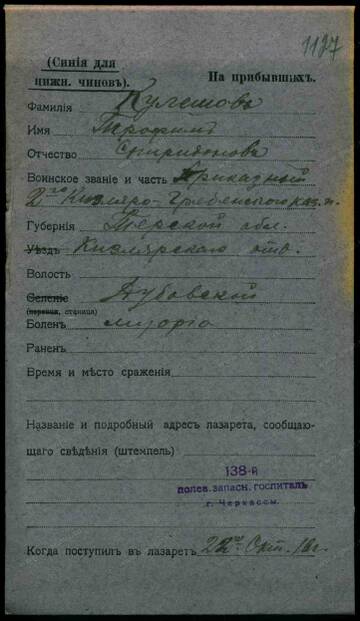 1127
(Синія для
нижн. чиновъ).
На прибывшихъ.
Фамилія Кулешовъ
Имя Трофимъ
Отчество Спиридоновъ
Воинское званіе и часть Приказный
2го Кизляро-Гребенского каз. п.
Губернія Терской обл.
Уѣздъ Кизлярскаго отд.
Волость
Селеніе Дубовской
(деревня, станица)
Боленъ
Раненъ
Время и мѣсто сраженія
Названіе и подробный адресъ лазарета, сообщаю-
щаго свѣдѣнія (штемпель)
138-й
полев. запасн. госпиталь
г. Черкассы.
Когда поступилъ въ лазаретъ 22го Окт. 16г.